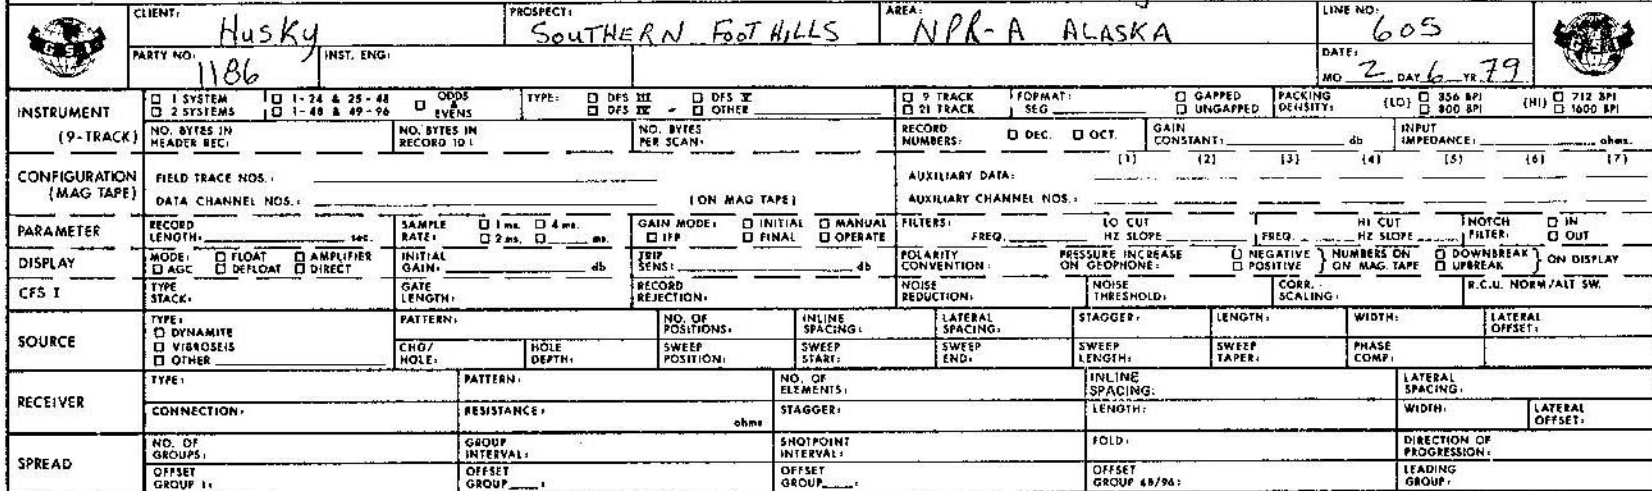 CLIENT: Husky PROSPECT: SOUTHERN FOOTHILLS AREA: NPR-A ALASKA LINE NO: 605
GSI
PARTY NO: 1186 INST. ENG: DATE: MO 2 DAY 6 YR 79
INSTRUMENT (9-TRACK)
☐ 1 SYSTEM ☐ 1-24 & 25-48 ☐ ODDS & EVENS TYPE: ☐ DFS III ☐ DFS V ☐ 9 TRACK FORMAT: ☐ GAPPED PACKING DENSITY: (LO) ☐ 356 BPI (HI) ☐ 712 BPI
☐ 2 SYSTEMS ☐ 1-48 & 49-96 ☐ DFS IV - ☐ OTHER ☐ 21 TRACK SEG ☐ UNGAPPED ☐ 800 BPI ☐ 1600 BPI
NO. BYTES IN HEADER REC: NO. BYTES IN RECORD ID: NO. BYTES PER SCAN: RECORD NUMBERS: ☐ DEC. ☐ OCT. GAIN CONSTANT: db INPUT IMPEDANCE: ohms.
CONFIGURATION (MAG TAPE)
(1) (2) (3) (4) (5) (6) (7)
FIELD TRACE NOS.: AUXILIARY DATA:
DATA CHANNEL NOS.: (ON MAG TAPE) AUXILIARY CHANNEL NOS.:
PARAMETER
RECORD LENGTH: sec. SAMPLE RATE: ☐ 1 ms. ☐ 4 ms. ☐ 2 ms. ☐ ms. GAIN MODE: ☐ INITIAL ☐ MANUAL ☐ IFP ☐ FINAL ☐ OPERATE FILTERS: LO CUT FREQ. HZ SLOPE HI CUT FREQ. HZ SLOPE NOTCH FILTER: ☐ IN ☐ OUT
DISPLAY
MODE: ☐ FLOAT ☐ AMPLIFIER ☐ AGC ☐ DEFLOAT ☐ DIRECT INITIAL GAIN: db TRIP SENS: db POLARITY CONVENTION: PRESSURE INCREASE ON GEOPHONE: ☐ NEGATIVE ☐ POSITIVE } NUMBERS ON MAG. TAPE ☐ DOWNBREAK ☐ UPBREAK } ON DISPLAY
CFS I
TYPE STACK: GATE LENGTH: RECORD REJECTION: NOISE REDUCTION: NOISE THRESHOLD: CORR. SCALING: R.C.U. NORM/ALT SW.
SOURCE
TYPE: ☐ DYNAMITE ☐ VIBROSEIS ☐ OTHER
PATTERN: NO. OF POSITIONS: INLINE SPACING: LATERAL SPACING: STAGGER: LENGTH: WIDTH: LATERAL OFFSET:
CHG/HOLE: HOLE DEPTH: SWEEP POSITION: SWEEP START: SWEEP END: SWEEP LENGTH: SWEEP TAPER: PHASE COMP:
RECEIVER
TYPE: PATTERN: NO. OF ELEMENTS: INLINE SPACING: LATERAL SPACING:
CONNECTION: RESISTANCE: ohms STAGGER: LENGTH: WIDTH: LATERAL OFFSET:
SPREAD
NO. OF GROUPS: GROUP INTERVAL: SHOTPOINT INTERVAL: FOLD: DIRECTION OF PROGRESSION:
OFFSET GROUP 1: OFFSET GROUP : OFFSET GROUP : OFFSET GROUP 48/96: LEADING GROUP: